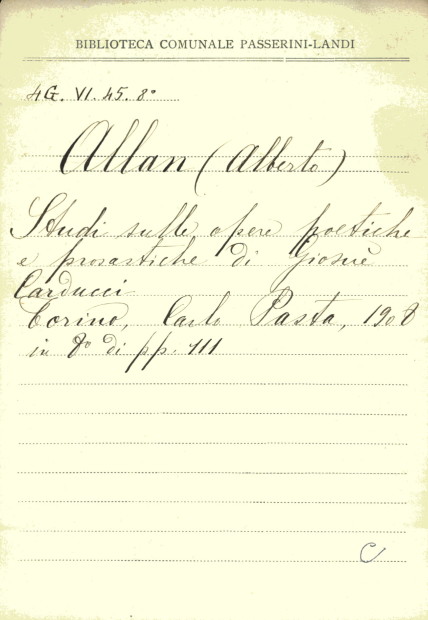 BIBLIOTECA COMUNALE PASSERINI-LANDI
4G. VI. 45. 8°
Allan (Alberto)
Studi sulle opere poetiche
e prosastiche di Giosuè
Carducci
Torino, Carlo Pasta, 1908
in 8° di pp. 111
C